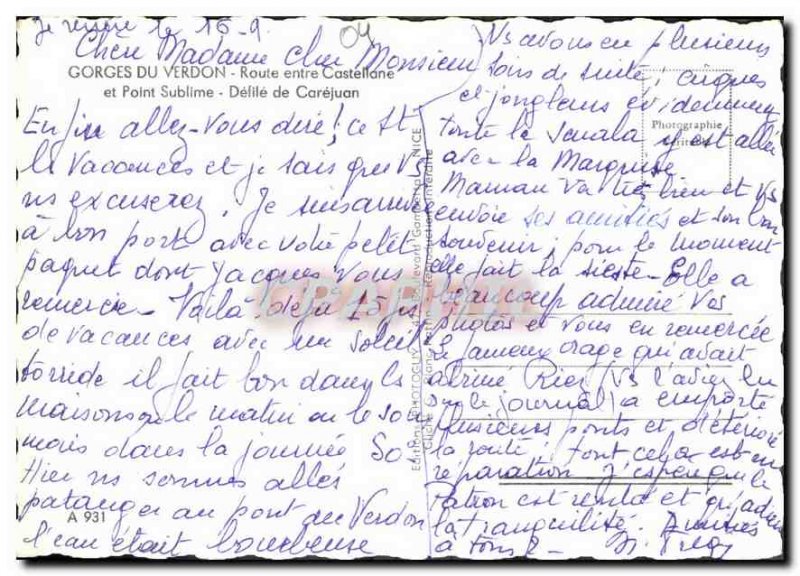 le 15-9
Chère Madame cher Monsieur
GORGES DU VERDON - Route entre Castellane
et Point Sublime - Défilé de Caréjuan
Enfin allez-vous dire! ce st
les vacances et je sais que vs
ns excuserez. Je suis arrivée
à bon port avec votre petit
paquet dont Jacques vous
remercie - Voilà déjà 15 jrs
de vacances avec un soleil
torride il fait bon dans les
maisons ou le matin ou le soir
mais dans la journée
Hier ns sommes allés
patauger au pont du Verdon
l'eau était bourbeuse
A 931
NICE
Photographie
Vs avons eu plusieurs
soirs de suite, cirques
et jongleurs évidemment
toute la smala y est allée
avec la Marquise
Maman va très bien et vs
envoie ses amitiés et son bon
souvenir; pour le moment
elle fait la sieste - Elle a
beaucoup admiré vos
photos et vous en remercie
le fameux orage qui avait
abîmé Riez (vs l'aviez lu
sur le journal) a emporté
plusieurs ponts et détérioré
la route; tout cela est en
réparation. J'espère que le
patron est rentré et
la tranquilité. Amitiés
à tous 2 -